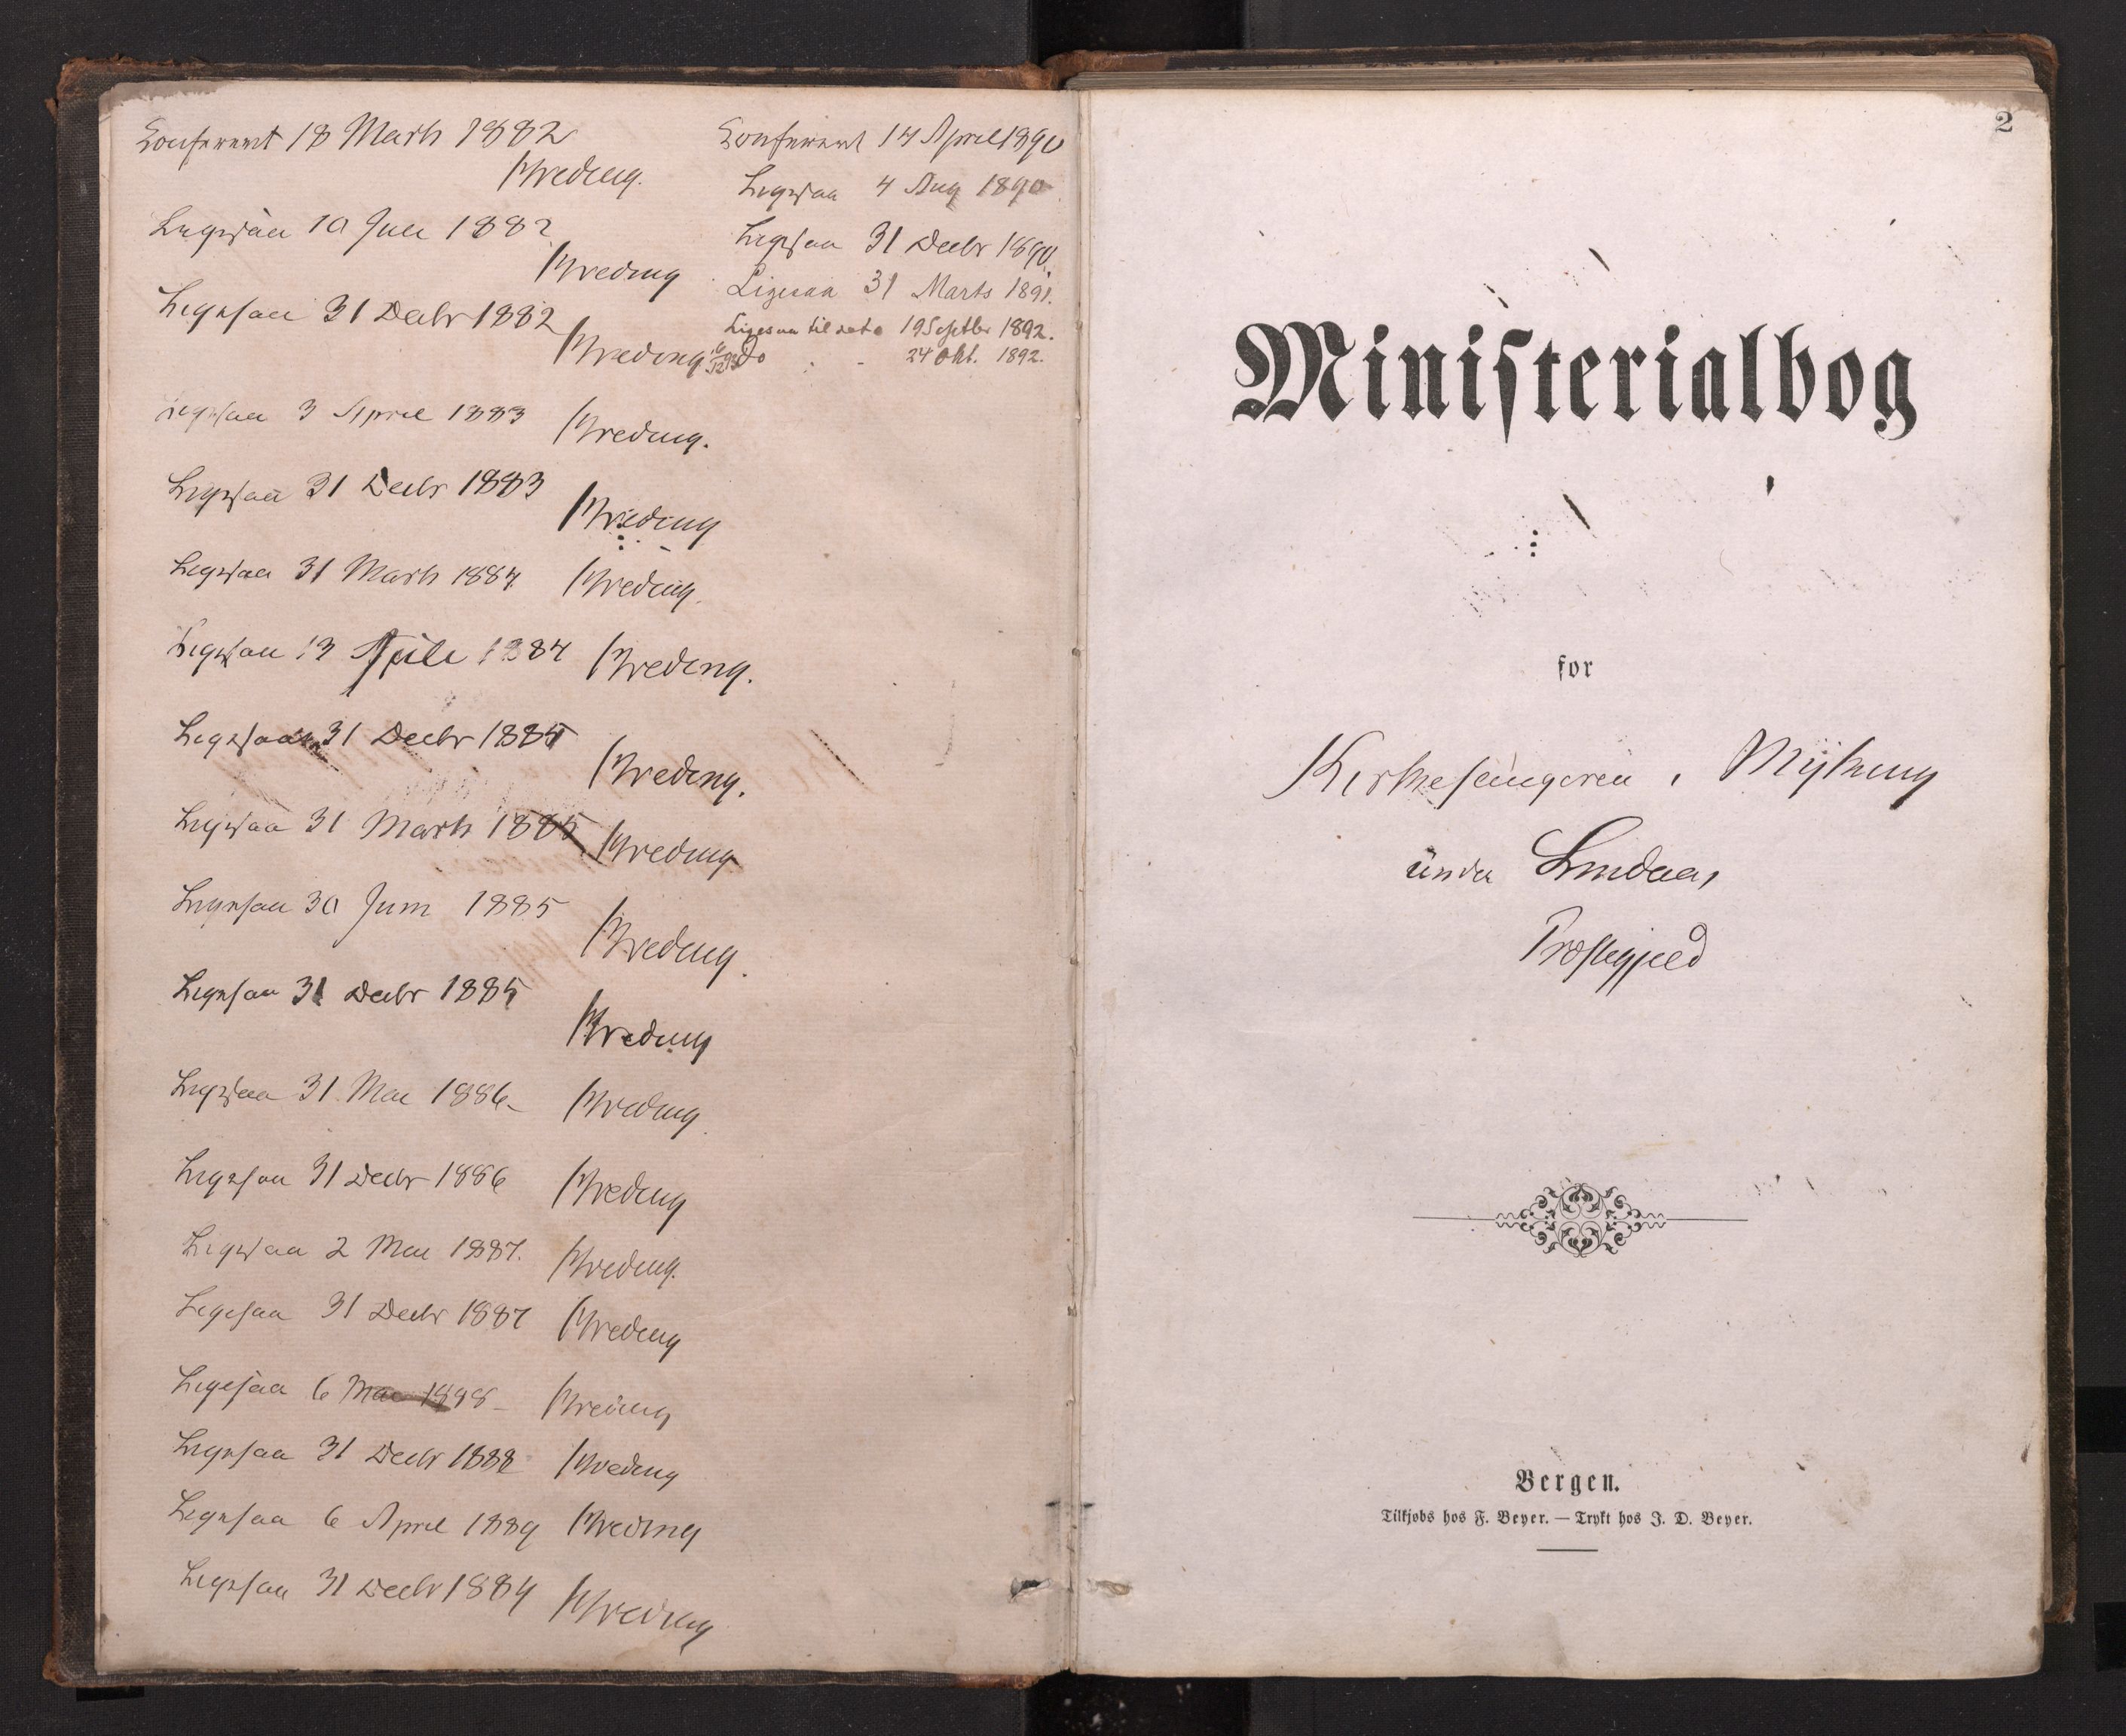 Konfereret 18 Marts 1882
Breding.
Ligesaa 10 Juli 1882
Breding
Ligesaa 31 Decbr 1882
Breding
Ligesaa 3 April 1883 Breding.
Ligesaa 31 Decbr 1883
Breding
Ligesaa 31 Marts 1884 Breding.
Ligesaa 13 1884 Breding.
Ligesaa 31 Decbr 1884
Breding.
Ligesaa 31 Marts 1885 Breding
Ligesaa 30 Juni 1885
Breding.
Ligesaa 31 Decbr 1885
Breding
Ligesaa 31 Mai 1886 Breding
Ligesaa 31 Decbr 1886 Breding
Ligesaa 2 Mai 1887. Breding.
Ligesaa 31 Decbr 1887 Breding
Ligesaa 6 Mai Breding
Ligesaa 31 Decbr 1888 Breding
Ligesaa 6 April 1889 Breding
Ligesaa 31 Decbr 1889 Breding
Konfereret 14 April 1890
Ligesaa 4 Aug 1890
Ligesaa 31 Decbr 1890.
Ligesaa 31 Marts 1891.
Ligesaa til dato 19 Septbr 1892.
Do - 24 Okt. 1892.
2
Ministerialbog
for
Kirkesangeren i Myking
under Lindaas
Præstegjeld
Bergen.
Tilkjøbs hos F. Beyer. — Trykt hos J. D. Beyer.